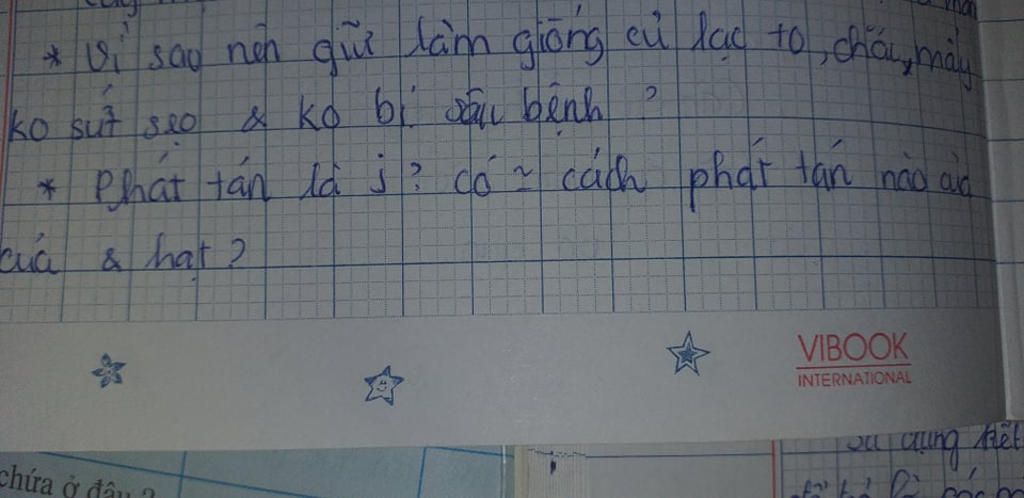 * Vì sao nên giữ làm giống củ lạc to, chắc, mẩy
ko sứt sẹo & ko bị sâu bệnh ?
* Phát tán là j? có ~ cách phát tán nào
quả & hạt ?
VIBOOK
INTERNATIONAL
chứa ở đâu ?